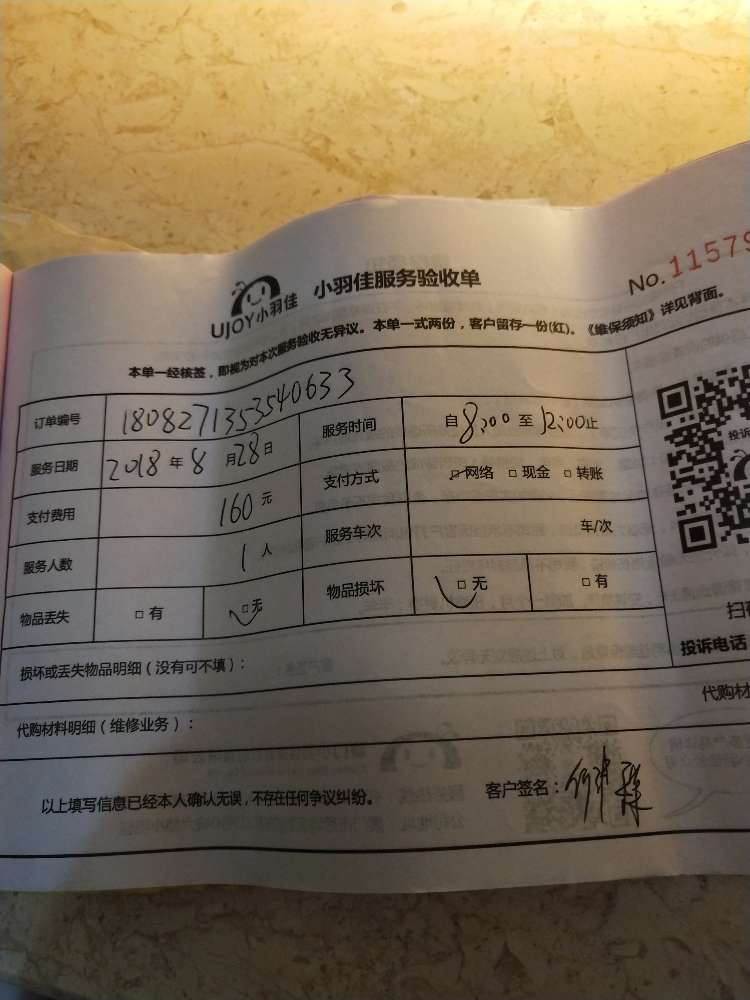 UJOY小羽佳 小羽佳服务验收单 No.11579
本单一经核签，即视为对本次服务验收无异议。本单一式两份，客户留存一份(红)。《维保须知》详见背面。
订单编号 1808271353540633 服务时间 自 8:00 至 12:00 止
服务日期 2018 年 8 月 28 日 支付方式 □网络 □现金 □转账
支付费用 160 元 服务车次 车/次
服务人数 1 人
物品丢失 □有 □无 物品损坏 □无 □有
投诉
扫
投诉电话
损坏或丢失物品明细（没有可不填）：
代购材料明细（维修业务）： 代购材
以上填写信息已经本人确认无误，不存在任何争议纠纷。 客户签名：